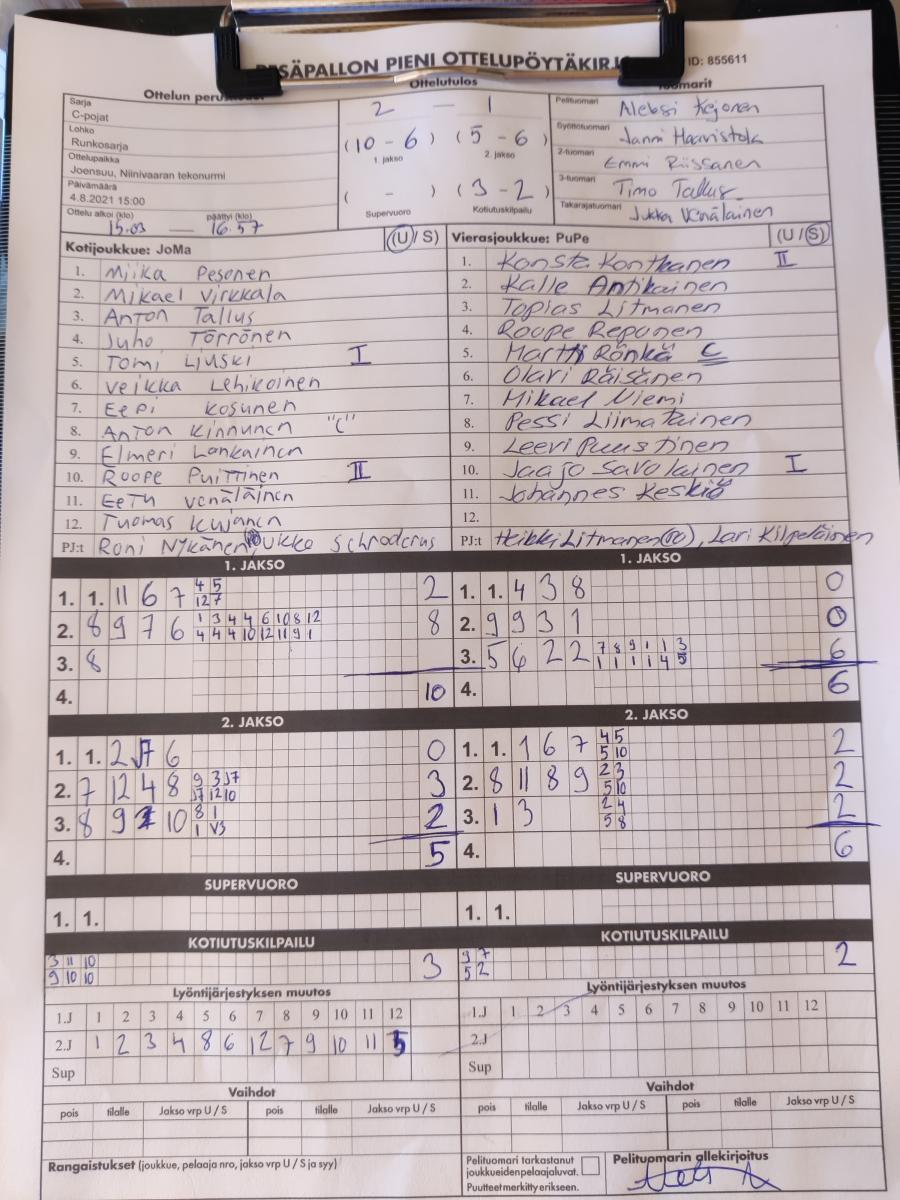 PESÄPALLON PIENI OTTELUPÖYTÄKIRJ
ID: 855611
Ottelun perus
Ottelutulos
Tuomarit
Sarja
C-pojat
Lohko
Runkosarja
Ottelupaikka
Joensuu, Niinivaaran tekonurmi
Päivämäärä
4.8.2021 15:00
Ottelu alkoi (klo) päättyi (klo)
15.03 — 16.57
2 — 1
(10 - 6) (5 - 6)
1. jakso 2. jakso
( - ) (3 - 2)
Supervuoro Kotiutuskilpailu
Pelituomari Aleksi Kejonen
Syöttötuomari Janni Haavistola
2-tuomari Emmi Riissanen
3-tuomari Timo Tallus
Takarajatuomari Jukka Venäläinen
Kotijoukkue: JoMa (U / S)
1. Miika Pesonen
2. Mikael Virkkala
3. Anton Tallus
4. Juho Törrönen
5. Tomi Ljuski I
6. Veikka Lehikoinen
7. Eepi Kosunen
8. Anton Kinnunen "C"
9. Elmeri Lankainen
10. Roope Puittinen II
11. Eetu Venäläinen
12. Tuomas Kujanen
PJ:t Roni Nykänen Ukko Schroderus
Vierasjoukkue: PuPe (U / S)
1. Konsta Kontkanen II
2. Kalle Antikainen
3. Topias Litmanen
4. Roope Reponen
5. Martti Rönkä C
6. Olari Räisänen
7. Mikael Niemi
8. Pessi Liimatainen
9. Leevi Puustinen
10. Jaajo Savolainen I
11. Johannes Keskiö
12.
PJ:t Heikki Litmanen, Lari Kilpeläinen
1. JAKSO
1. 1. 11 6 7 4 5 2
12 7
2. 8 9 7 6 1 3 4 4 6 10 8 12 8
4 4 4 10 12 11 9 1
3. 8
4. 10
1. JAKSO
1. 1. 4 3 8 0
2. 9 9 3 1 0
3. 5 6 2 2 7 8 9 1 1 3 6
1 1 1 1 4 5
4. 6
2. JAKSO
1. 1. 2 7 6 0
2. 7 12 4 8 9 3 7 3
7 12 10
3. 8 9 10 8 1 2
1 VS
4. 5
2. JAKSO
1. 1. 1 6 7 4 5 2
5 10
2. 8 11 8 9 2 3 2
5 10
3. 1 3 2 4 2
5 8
4. 6
SUPERVUORO
1. 1.
SUPERVUORO
1. 1.
KOTIUTUSKILPAILU
3 11 10 3
9 10 10
KOTIUTUSKILPAILU
9 7 2
5 2
Lyöntijärjestyksen muutos
1.J 1 2 3 4 5 6 7 8 9 10 11 12
2.J 1 2 3 4 8 6 12 7 9 10 11 5
Sup
Lyöntijärjestyksen muutos
1.J 1 2 3 4 5 6 7 8 9 10 11 12
2.J
Sup
Vaihdot
pois tilalle Jakso vrp U / S pois tilalle Jakso vrp U / S
Vaihdot
pois tilalle Jakso vrp U / S pois tilalle Jakso vrp U / S
Rangaistukset (joukkue, pelaaja nro, jakso vrp U / S ja syy)
Pelituomari tarkastanut
joukkueiden pelaajaluvat.
Puutteet merkitty erikseen.
Pelituomarin allekirjoitus